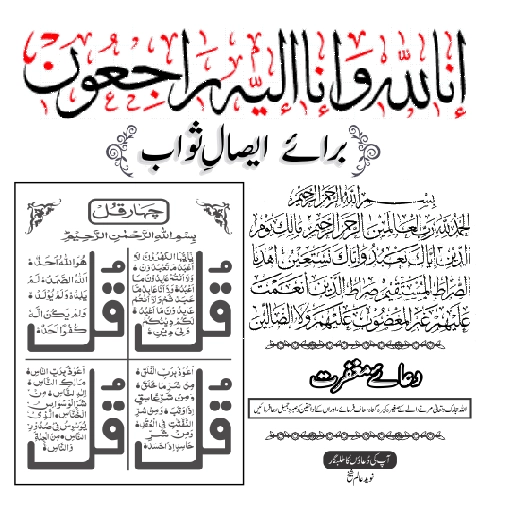 انا لله وانا اليه راجعون
برائے ایصالِ ثواب
چہار قل
بِسْمِ اللهِ الرَّحْمٰنِ الرَّحِيْمِ
قُلْ
يٰٓاَيُّهَا الْكٰفِرُوْنَ لَآ
اَعْبُدُ مَا تَعْبُدُوْنَ
وَلَآ اَنْتُمْ عٰبِدُوْنَ مَآ
اَعْبُدُ وَلَآ اَنَا عَابِدٌ مَّا
عَبَدْتُّمْ وَلَآ اَنْتُمْ
عٰبِدُوْنَ مَآ اَعْبُدُ
لَكُمْ دِيْنُكُمْ
وَلِيَ دِيْنِ
قُلْ
هُوَ اللهُ اَحَدٌ
اَللهُ الصَّمَدُ لَمْ
يَلِدْ وَلَمْ يُوْلَدْ
وَلَمْ يَكُنْ لَّهٗ
كُفُوًا اَحَدٌ
قُلْ
اَعُوْذُ بِرَبِّ الْفَلَقِ
مِنْ شَرِّ مَا خَلَقَ
وَمِنْ شَرِّ غَاسِقٍ
اِذَا وَقَبَ وَمِنْ شَرِّ
النَّفّٰثٰتِ فِي الْعُقَدِ
وَمِنْ شَرِّ
حَاسِدٍ اِذَا حَسَدَ
قُلْ
اَعُوْذُ بِرَبِّ النَّاسِ
مَلِكِ النَّاسِ
اِلٰهِ النَّاسِ مِنْ
شَرِّ الْوَسْوَاسِ
الْخَنَّاسِ الَّذِيْ
يُوَسْوِسُ فِيْ صُدُوْرِ
النَّاسِ مِنَ الْجِنَّةِ
وَالنَّاسِ
بسم الله الرحمن الرحيم
الحمد لله رب العالمين الرحمن الرحيم مالك يوم
الدين اياك نعبد واياك نستعين اهدنا
الصراط المستقيم صراط الذين انعمت
عليهم غير المغضوب عليهم ولا الضالين
دعائے مغفرت
آپ کی دُعاؤں کا طلبگار
نوید عالم شیخ